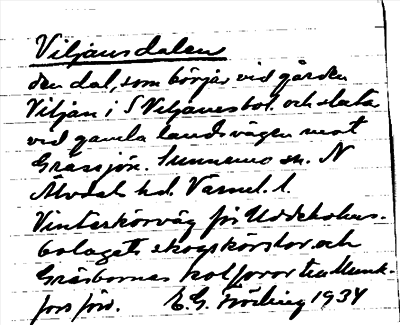 Viljansdalen
den dal, som börjar vid gården
Viljan i S Viljanesbol. och sluta
vid gamla landsvägen mot
Gråssjön. Sunnemo sn. N
Älvdals hd. Värml. l.
Vinterkörväg för Uddeholms-
bolagets skogskörslor och
Gräsbornas kolforor till Munk-
fors förr. E.G. Fröding 1934